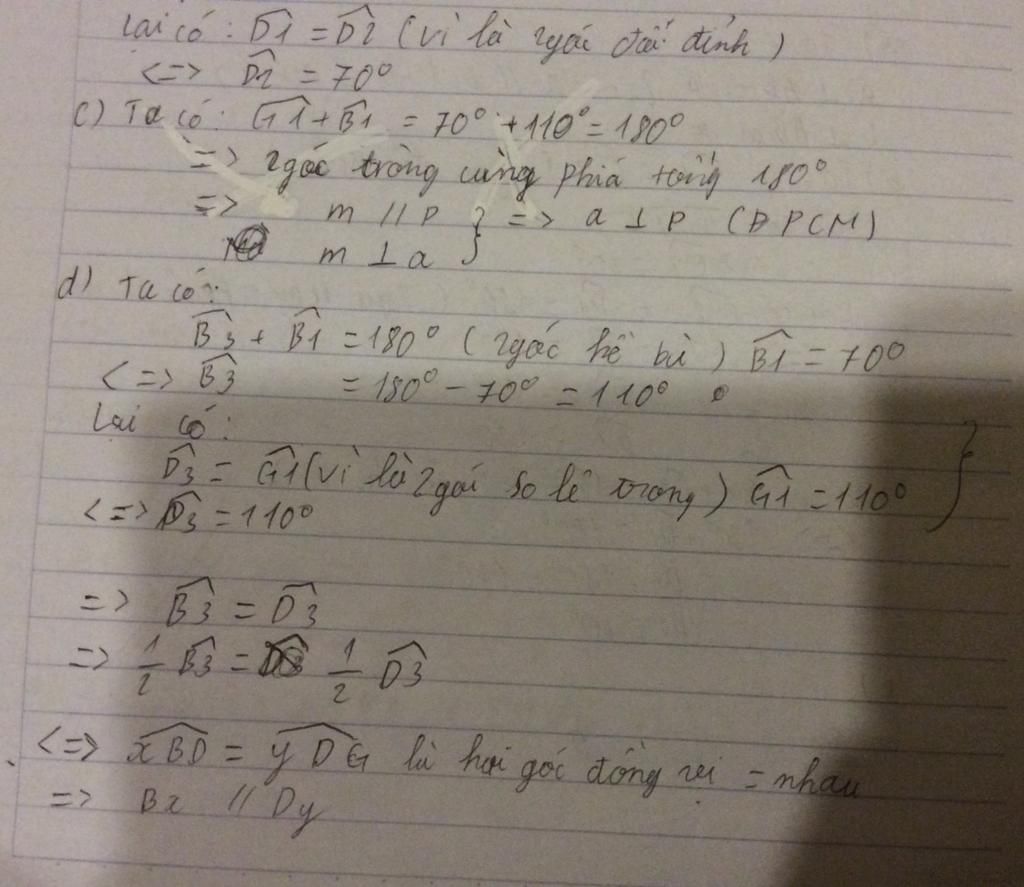 Lại có : D̂1 = D̂2 (vì là 2góc đối đỉnh)
<=> D̂2 = 70°
c) Ta có: Ĝ1 + B̂1 = 70° + 110° = 180°
=> 2góc trong cùng phía tổng 180°
=> m // p } => a ⊥ p (ĐPCM)
m ⊥ a
d) Ta có:
B̂3 + B̂1 = 180° (2góc kề bù) B̂1 = 70°
<=> B̂3 = 180° - 70° = 110°
Lại có:
D̂3 = Ĝ1 (vì là 2góc so le trong) Ĝ1 = 110° }
<=> D̂3 = 110°
=> B̂3 = D̂3
=> 1/2 B̂3 = 1/2 D̂3
<=> xBD = yDG là hai góc đồng vị = nhau
=> Bx // Dy